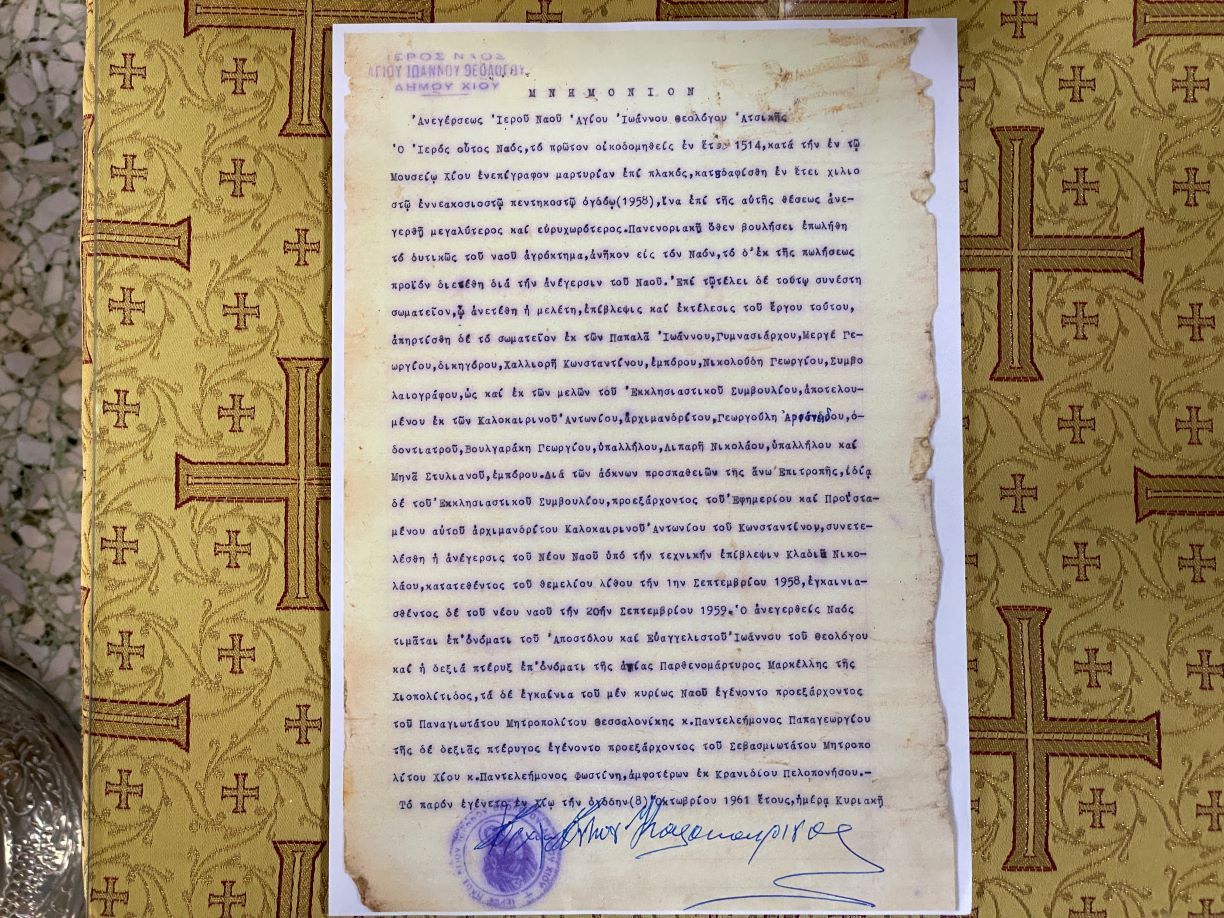 ΙΕΡΟΣ ΝΑΟΣ
ΑΓΙΟΥ ΙΩΑΝΝΟΥ ΘΕΟΛΟΓΟΥ
ΔΗΜΟΥ ΧΙΟΥ
Μ Ν Η Μ Ο Ν Ι Ο Ν
Ἀνεγέρσεως Ἱεροῦ Ναοῦ Ἁγίου Ἰωάννου Θεολόγου Ἀτσικῆς
Ὁ Ἱερός οὗτος Ναός,τό πρῶτον οἰκοδομηθείς ἐν ἔτει 1514,κατά τήν ἐν τῷ
Μουσείῳ Χίου ἐνεπίγραφον μαρτυρίαν ἐπί πλακός,κατεδαφίσθη ἐν ἔτει χιλιο
στῷ ἐννεακοσιοστῷ πεντηκοστῷ ὀγδόῳ(1958),ἵνα ἐπί τῆς αὐτῆς θέσεως ἀνε-
γερθῇ μεγαλύτερος καί εὐρυχωρότερος.Πανενοριακῇ ὅθεν βουλήσει ἐπωλήθη
τό δυτικῶς τοῦ ναοῦ ἀγρόκτημα,ἀνῆκον εἰς τόν Ναόν,τό δ'ἐκ τῆς πωλήσεως
προϊόν διετέθη διά τήν ἀνέγερσιν τοῦ Ναοῦ.Ἐπί τῷτέλει δέ τούτῳ συνέστη
σωματεῖον,ᾧ ἀνετέθη ἡ μελέτη,ἐπίβλεψις καί ἐκτέλεσις τοῦ ἔργου τούτου,
ἀπηρτίσθη δέ τό σωματεῖον ἐκ τῶν Παπαλᾶ Ἰωάννου,Γυμνασιάρχου,Μεργέ Γε-
ωργίου,δικηγόρου,Χαλλιορῆ Κωνσταντίνου,ἐμπόρου,Νικολούδη Γεωργίου,Συμβο
λαιογράφου,ὡς καί ἐκ τῶν μελῶν τοῦ Ἐκκλησιαστικοῦ Συμβουλίου,ἀποτελου-
μένου ἐκ τῶν Καλοκαιρινοῦ Ἀντωνίου,ἀρχιμανδρίτου,Γεωργούλη ὀ-
δοντιατροῦ,Βουλγαράκη Γεωργίου,ὑπαλλήλου,Λιπαρῆ Νικολάου,ὑπαλλήλου καί
Μηνᾶ Στυλιανοῦ,ἐμπόρου.Διά τῶν ἀόκνων προσπαθειῶν τῆς ἄνω Ἐπιτροπῆς,ἰδίᾳ
δέ τοῦ Ἐκκλησιαστικοῦ Συμβουλίου,προεξάρχοντος τοῦ Ἐφημερίου καί Προϊστα-
μένου αὐτοῦ ἀρχιμανδρίτου Καλοκαιρινοῦ Ἀντωνίου τοῦ Κωνσταντίνου,συνετε-
λέσθη ἡ ἀνέγερσις τοῦ Νέου Ναοῦ ὑπό τήν τεχνικήν ἐπίβλεψιν Κλαδιᾶ Νικο-
λάου,κατατεθέντος τοῦ θεμελίου λίθου τήν 1ην Σεπτεμβρίου 1958,ἐγκαινια-
σθέντος δέ τοῦ νέου ναοῦ τήν 20ήν Σεπτεμβρίου 1959.Ὁ ἀνεγερθείς Ναός
τιμᾶται ἐπ'ὀνόματι τοῦ Ἀποστόλου καί Εὐαγγελιστοῦ Ἰωάννου τοῦ Θεολόγου
καί ἡ δεξιά πτέρυξ ἐπ'ὀνόματι τῆς ἁγίας Παρθενομάρτυρος Μαρκέλλης τῆς
Χιοπολίτιδος,τά δέ ἐγκαίνια τοῦ μέν κυρίως Ναοῦ ἐγένοντο προεξάρχοντος
τοῦ Παναγιωτάτου Μητροπολίτου Θεσσαλονίκης κ.Παντελεήμονος Παπαγεωργίου
τῆς δέ δεξιᾶς πτέρυγος ἐγένοντο προεξάρχοντος τοῦ Σεβασμιωτάτου Μητροπο
λίτου Χίου κ.Παντελεήμονος Φωστίνη,ἀμφοτέρων ἐκ Κρανιδίου Πελοπονήσου.-
Τό παρόν ἐγένετο ἐν Χίῳ τήν ὀγδόην(8) Ὀκτωβρίου 1961 ἔτους,ἡμέρᾳ Κυριακῇ